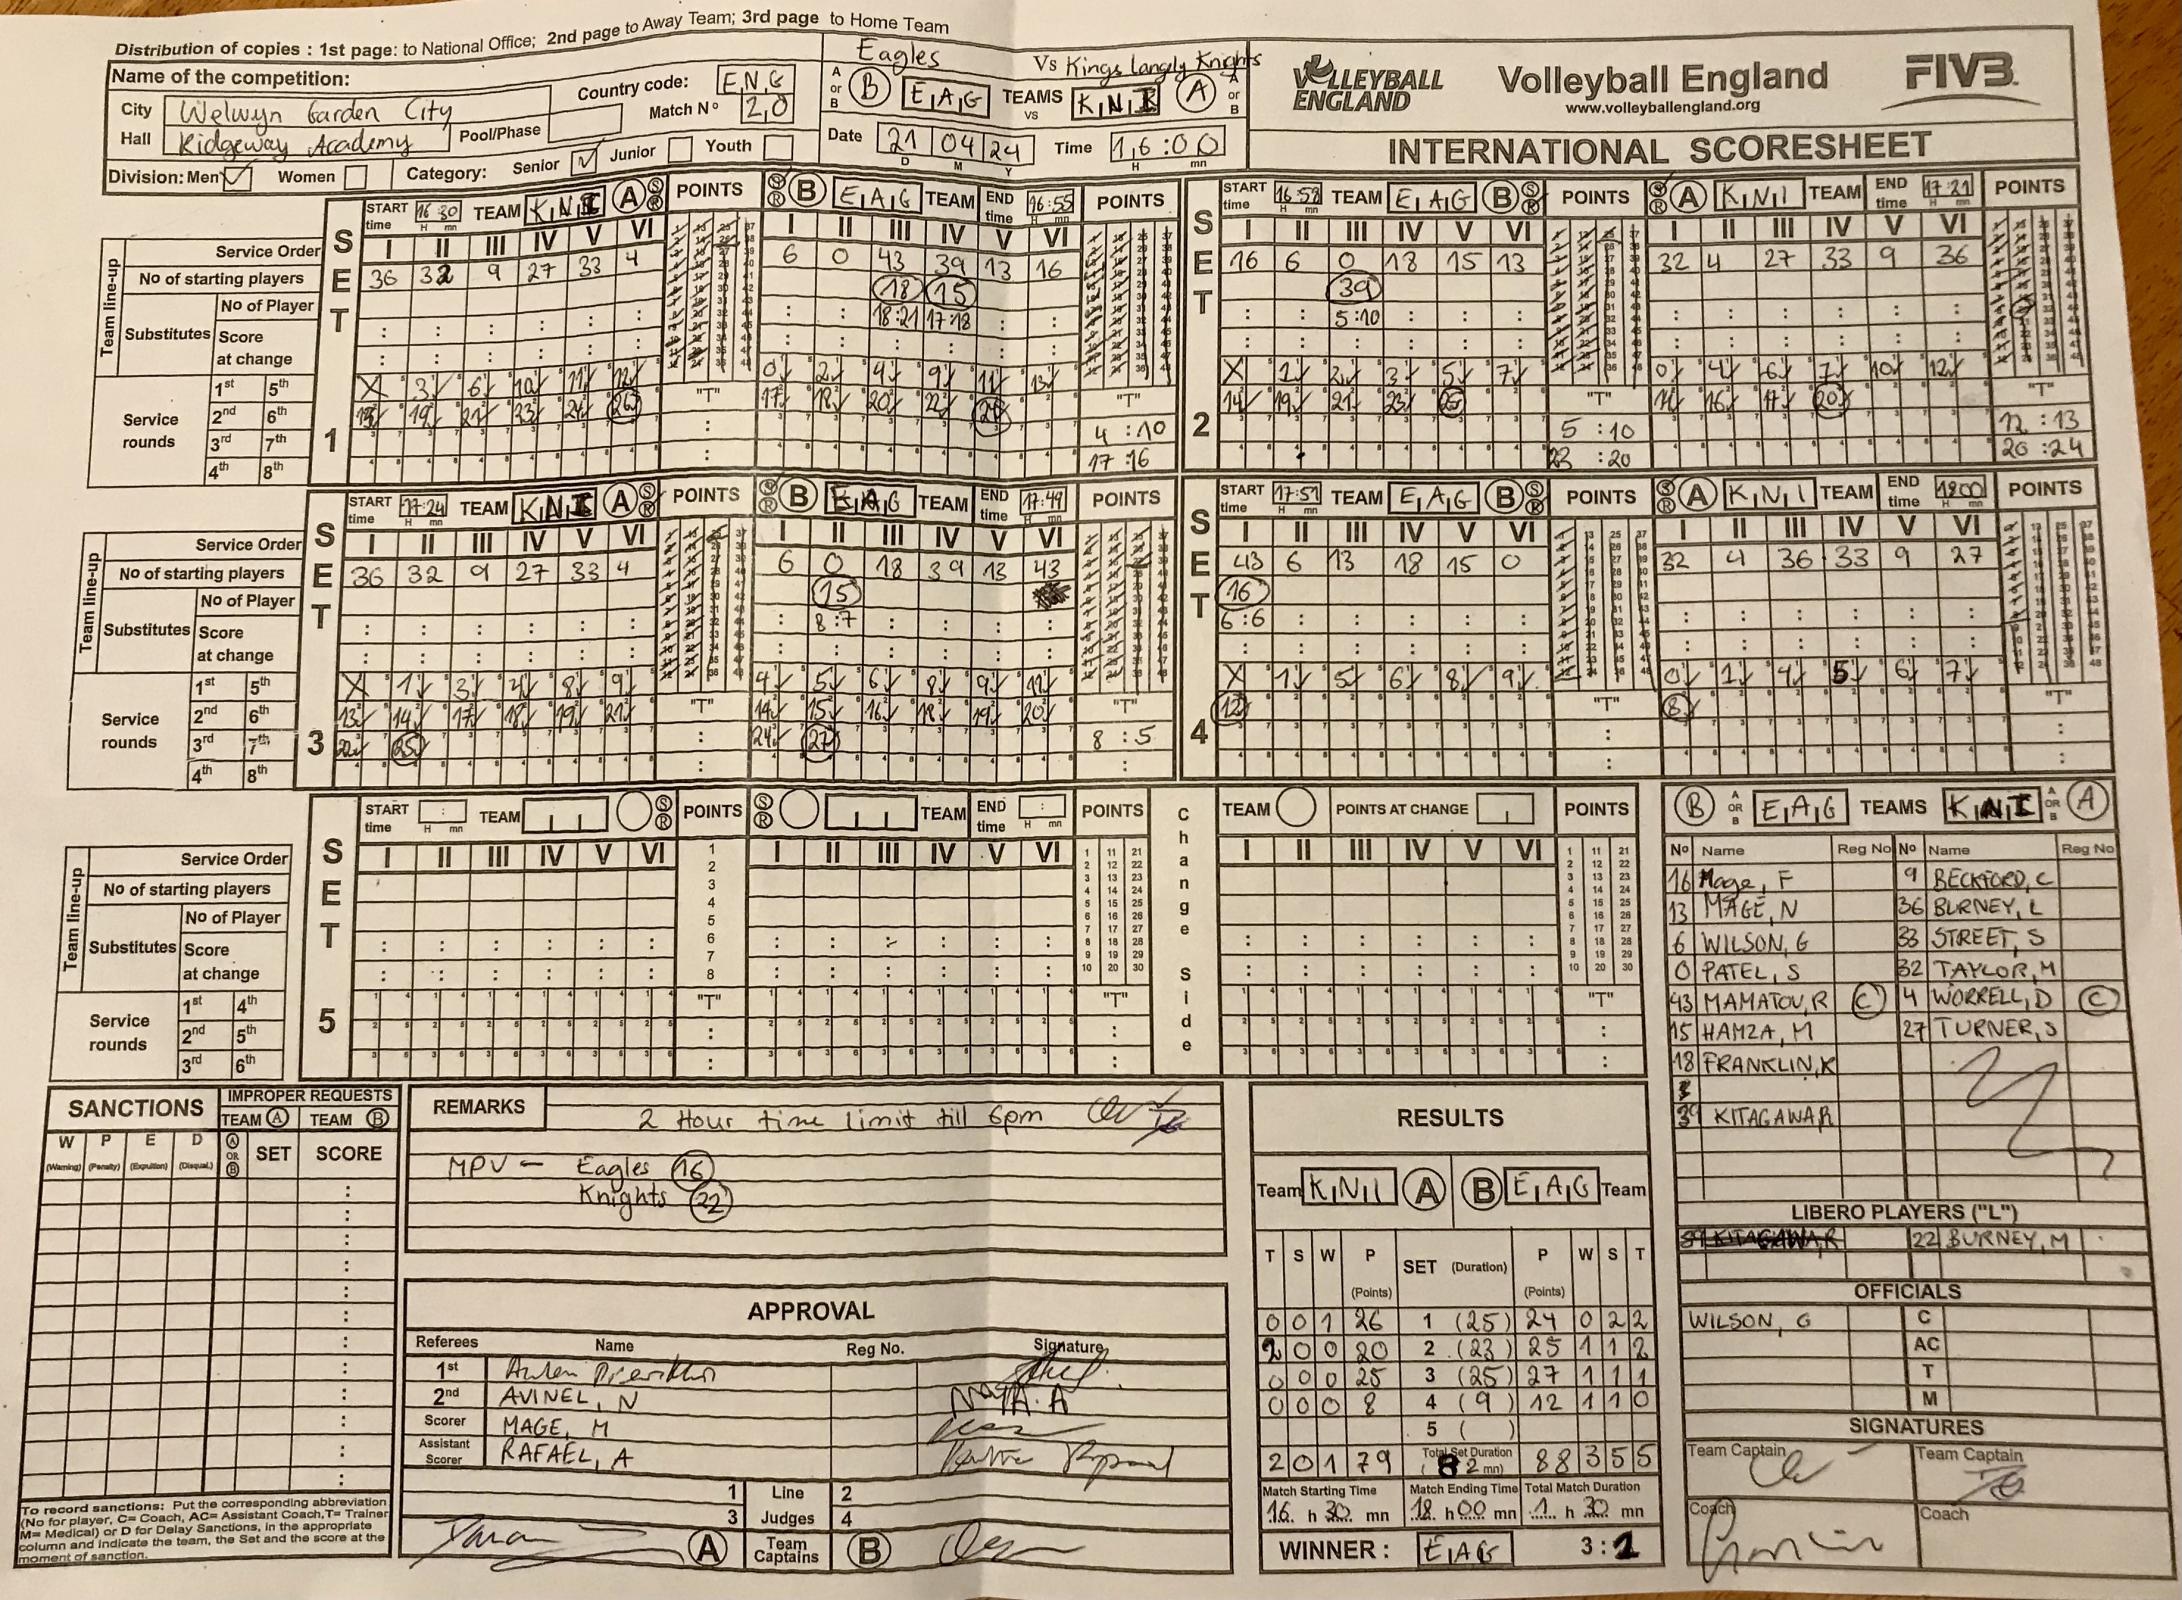 Distribution of copies : 1st page: to National Office; 2nd page to Away Team; 3rd page to Home Team
Name of the competition:
City Welwyn Garden City
Hall Ridgeway Academy Pool/Phase
Country code: ENG
Match Nº 20
Division: Men ✓ Women Category: Senior ✓ Junior Youth
Eagles Vs Kings Langly Knights
A or B (B) EAG TEAMS vs KNI (A) A or B
Date 21 04 24 Time 16:00
D M Y H mn
VOLLEYBALL ENGLAND
Volleyball England
www.volleyballengland.org
FIVB
INTERNATIONAL SCORESHEET
SET 1
START time 16:30 TEAM KNI (A) S R POINTS S R (B) EAG TEAM END time 16:55 POINTS
Service Order I II III IV V VI I II III IV V VI
No of starting players 36 32 9 27 33 4 6 0 43 39 13 16
Team line-up
Substitutes No of Player 18 15
Score at change 18:21 17:18
Service rounds
1st 5th X 3 6 10 11 12 0 2 4 9 11 13
2nd 6th 13 19 21 23 24 26 17 18 20 22 24
3rd 7th
4th 8th
"T" "T" 4:10
17:16
SET 2
START time 16:58 TEAM EAG (B) S R POINTS S R (A) KNI TEAM END time 17:21 POINTS
I II III IV V VI I II III IV V VI
16 6 0 18 15 13 32 4 27 33 9 36
39
5:10
X 1 2 3 5 7 0 4 6 7 10 12
14 19 21 23 25 14 16 17 20
"T" 5:10 23:20
"T" 12:13 20:24
SET 3
START time 17:24 TEAM KNI (A) S R POINTS S R (B) EAG TEAM END time 17:49 POINTS
Service Order I II III IV V VI I II III IV V VI
No of starting players 36 32 9 27 33 4 6 0 18 39 13 43
Team line-up
Substitutes No of Player 15
Score at change 8:7
Service rounds
1st 5th X 1 3 4 8 9 4 5 6 8 9 11
2nd 6th 13 14 17 18 19 21 14 15 16 18 19 20
3rd 7th 22 25 24 27
4th 8th
"T" "T" 8:5
SET 4
START time 17:51 TEAM EAG (B) S R POINTS S R (A) KNI TEAM END time 1800 POINTS
I II III IV V VI I II III IV V VI
43 6 13 18 15 0 32 4 36 33 9 27
16
6:6
X 1 5 6 8 9 0 1 4 5 6 7
12 8
"T" "T"
SET 5
START time TEAM S R POINTS S R TEAM END time POINTS
Change Side
TEAM POINTS AT CHANGE POINTS
Service Order I II III IV V VI I II III IV V VI I II III IV V VI
No of starting players
Team line-up
Substitutes No of Player
Score at change
Service rounds
1st 4th
2nd 5th
3rd 6th
"T" "T" "T"
(B) A OR B EAG TEAMS KNI A OR B (A)
Nº Name Reg No Nº Name Reg No
16 Mage, F 9 BECKFORD, C
13 MAGE, N 36 BURNEY, L
6 WILSON, G 33 STREET, S
0 PATEL, S 32 TAYLOR, M
43 MAMATOV, R (C) 4 WORRELL, D (C)
15 HAMZA, M 27 TURNER, S
18 FRANKLIN, K
39 KITAGAWA, R
LIBERO PLAYERS ("L")
39 KITAGAWA, R 22 BURNEY, M
OFFICIALS
WILSON, G C
AC
T
M
SIGNATURES
Team Captain Team Captain
Coach Coach
SANCTIONS
IMPROPER REQUESTS
TEAM (A) TEAM (B)
W (Warning) P (Penalty) E (Expultion) D (Disqual.) A OR B SET SCORE
To record sanctions: Put the corresponding abbreviation
(No for player, C= Coach, AC= Assistant Coach,T= Trainer
M= Medical) or D for Delay Sanctions, in the appropriate
column and indicate the team, the Set and the score at the
moment of sanction.
REMARKS
2 Hour time limit till 6pm
MPV - Eagles (16)
Knights (22)
APPROVAL
Referees Name Reg No. Signature
1st
2nd AVINEL, N
Scorer MAGE, M
Assistant Scorer RAFAEL, A
1 Line 2
3 Judges 4
(A) Team Captains (B)
RESULTS
Team KNI (A) (B) EAG Team
T S W P (Points) SET (Duration) P (Points) W S T
0 0 1 26 1 (25) 24 0 2 2
2 0 0 20 2 (23) 25 1 1 2
0 0 0 25 3 (25) 27 1 1 1
0 0 0 8 4 (9) 12 1 1 0
5 ( )
2 0 1 79 Total Set Duration (82 mn) 88 3 5 5
Match Starting Time Match Ending Time Total Match Duration
16 h 30 mn 18 h 00 mn 1 h 30 mn
WINNER : EAG 3:1